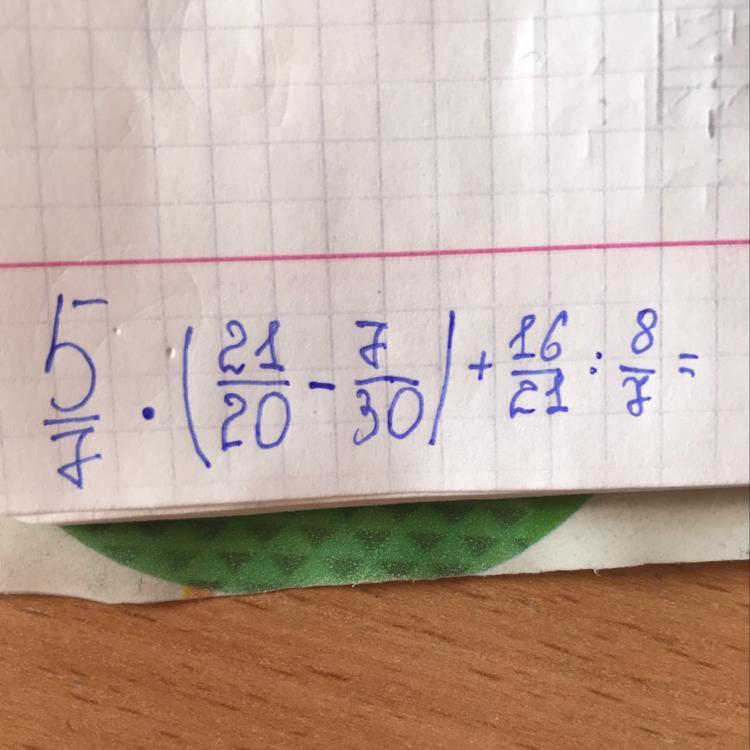 5/7 · (21/20 - 7/30) + 16/21 : 8/7 =